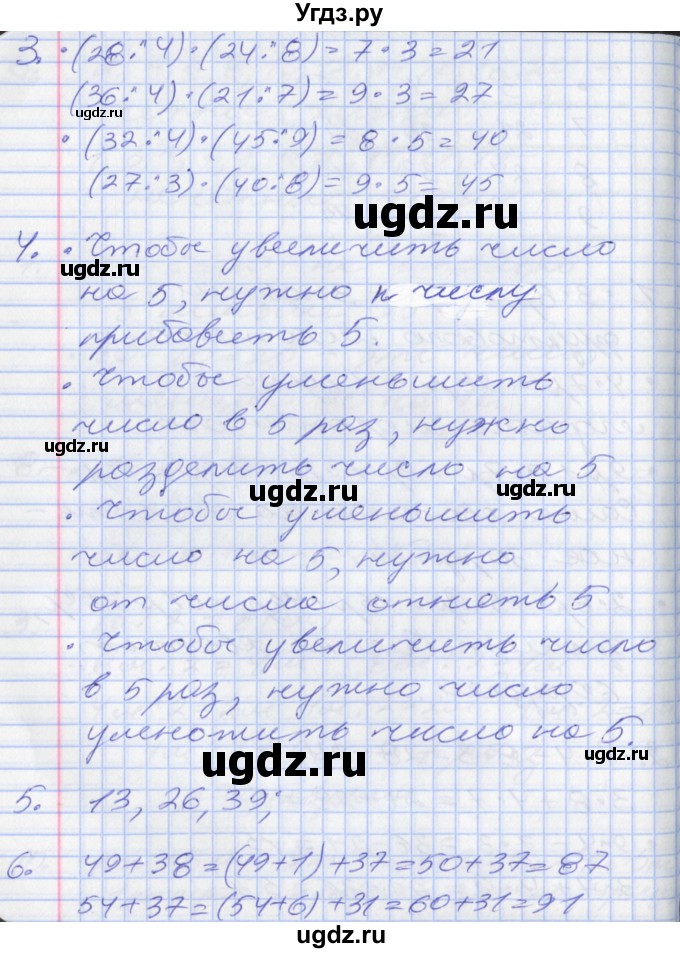 Угдз.ру
3. • (28:4)·(24:8)=7·3=21
(36:4)·(21:7)=9·3=27
• (32:4)·(45:9)=8·5=40
(27:3)·(40:8)=9·5=45
4. • Чтобы увеличить число
на 5, нужно к числу
прибавить 5.
• Чтобы уменьшить
число в 5 раз, нужно
разделить число на 5
• Чтобы уменьшить
число на 5, нужно
от числа отнять 5
• Чтобы увеличить число
в 5 раз, нужно число
умножить число на 5.
5. 13, 26, 39;
6. 49+38=(49+1)+37=50+37=87
54+37=(54+6)+31=60+31=91
ugdz.ru
ugdz.ru
ugdz.ru
ugdz.ru
ugdz.ru
ugdz.ru
ugdz.ru
ugdz.ru
ugdz.ru
ugdz.ru